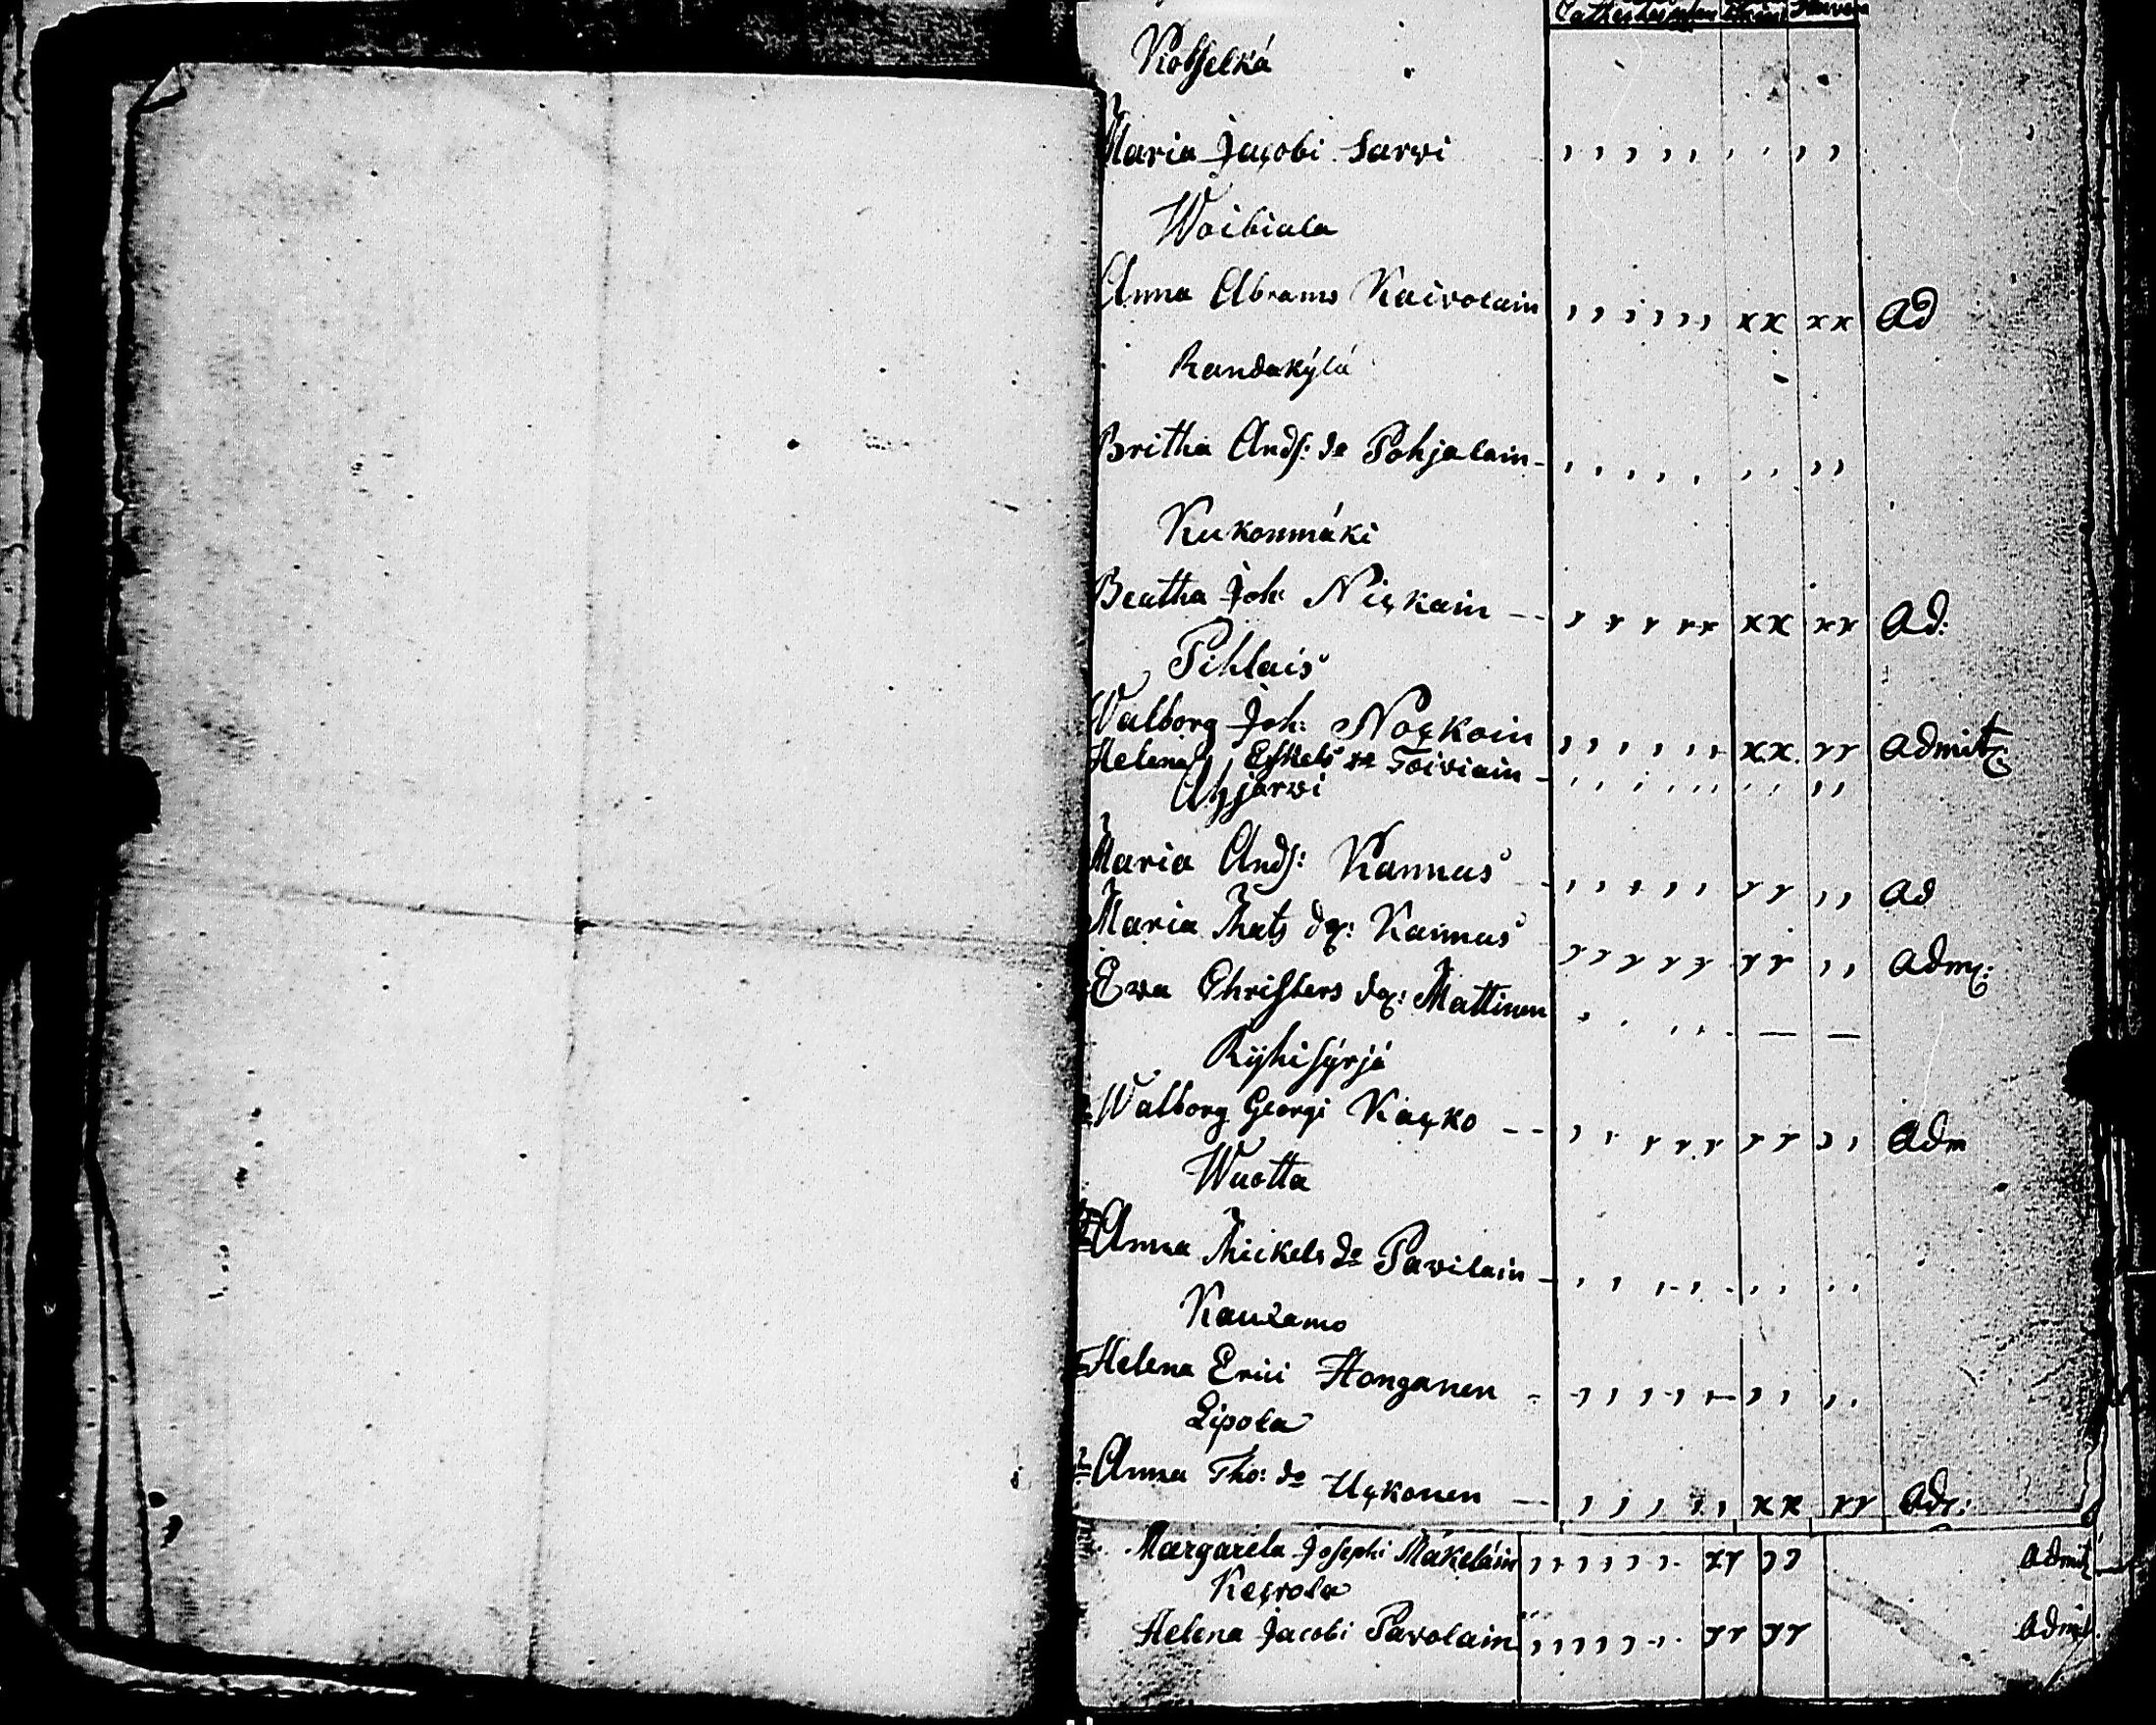 Kosselkä
Maria Jacobi Sarvi
Woibiala
Anna Abrams Kaivolain xx xx Ad
Randakÿlä
Britha Ands: dr Pohjalain
Kukonmäki
Beatha Joh: Niskain xx Ad:
Pihlais
Walborg Joh: Noskoin xx Admit:
Helena Eskels dr Toiviain
Ahjarvi
Maria Ands: Kannus Ad
Maria Mats dr: Kannus Adm:
Ewa Christers dr: Mattinen
Walborg Georgi Kasko Adm
Wuotta
Anna Mickels dr Pavilain
Kaukamo
Helena Erici Honganen
Lipola
Anna Tho: dr Uskonen xx Ad:
Margareta Josephi Mäkeläin Admit
Kesvola
Helena Jacobi Pavolain Admit